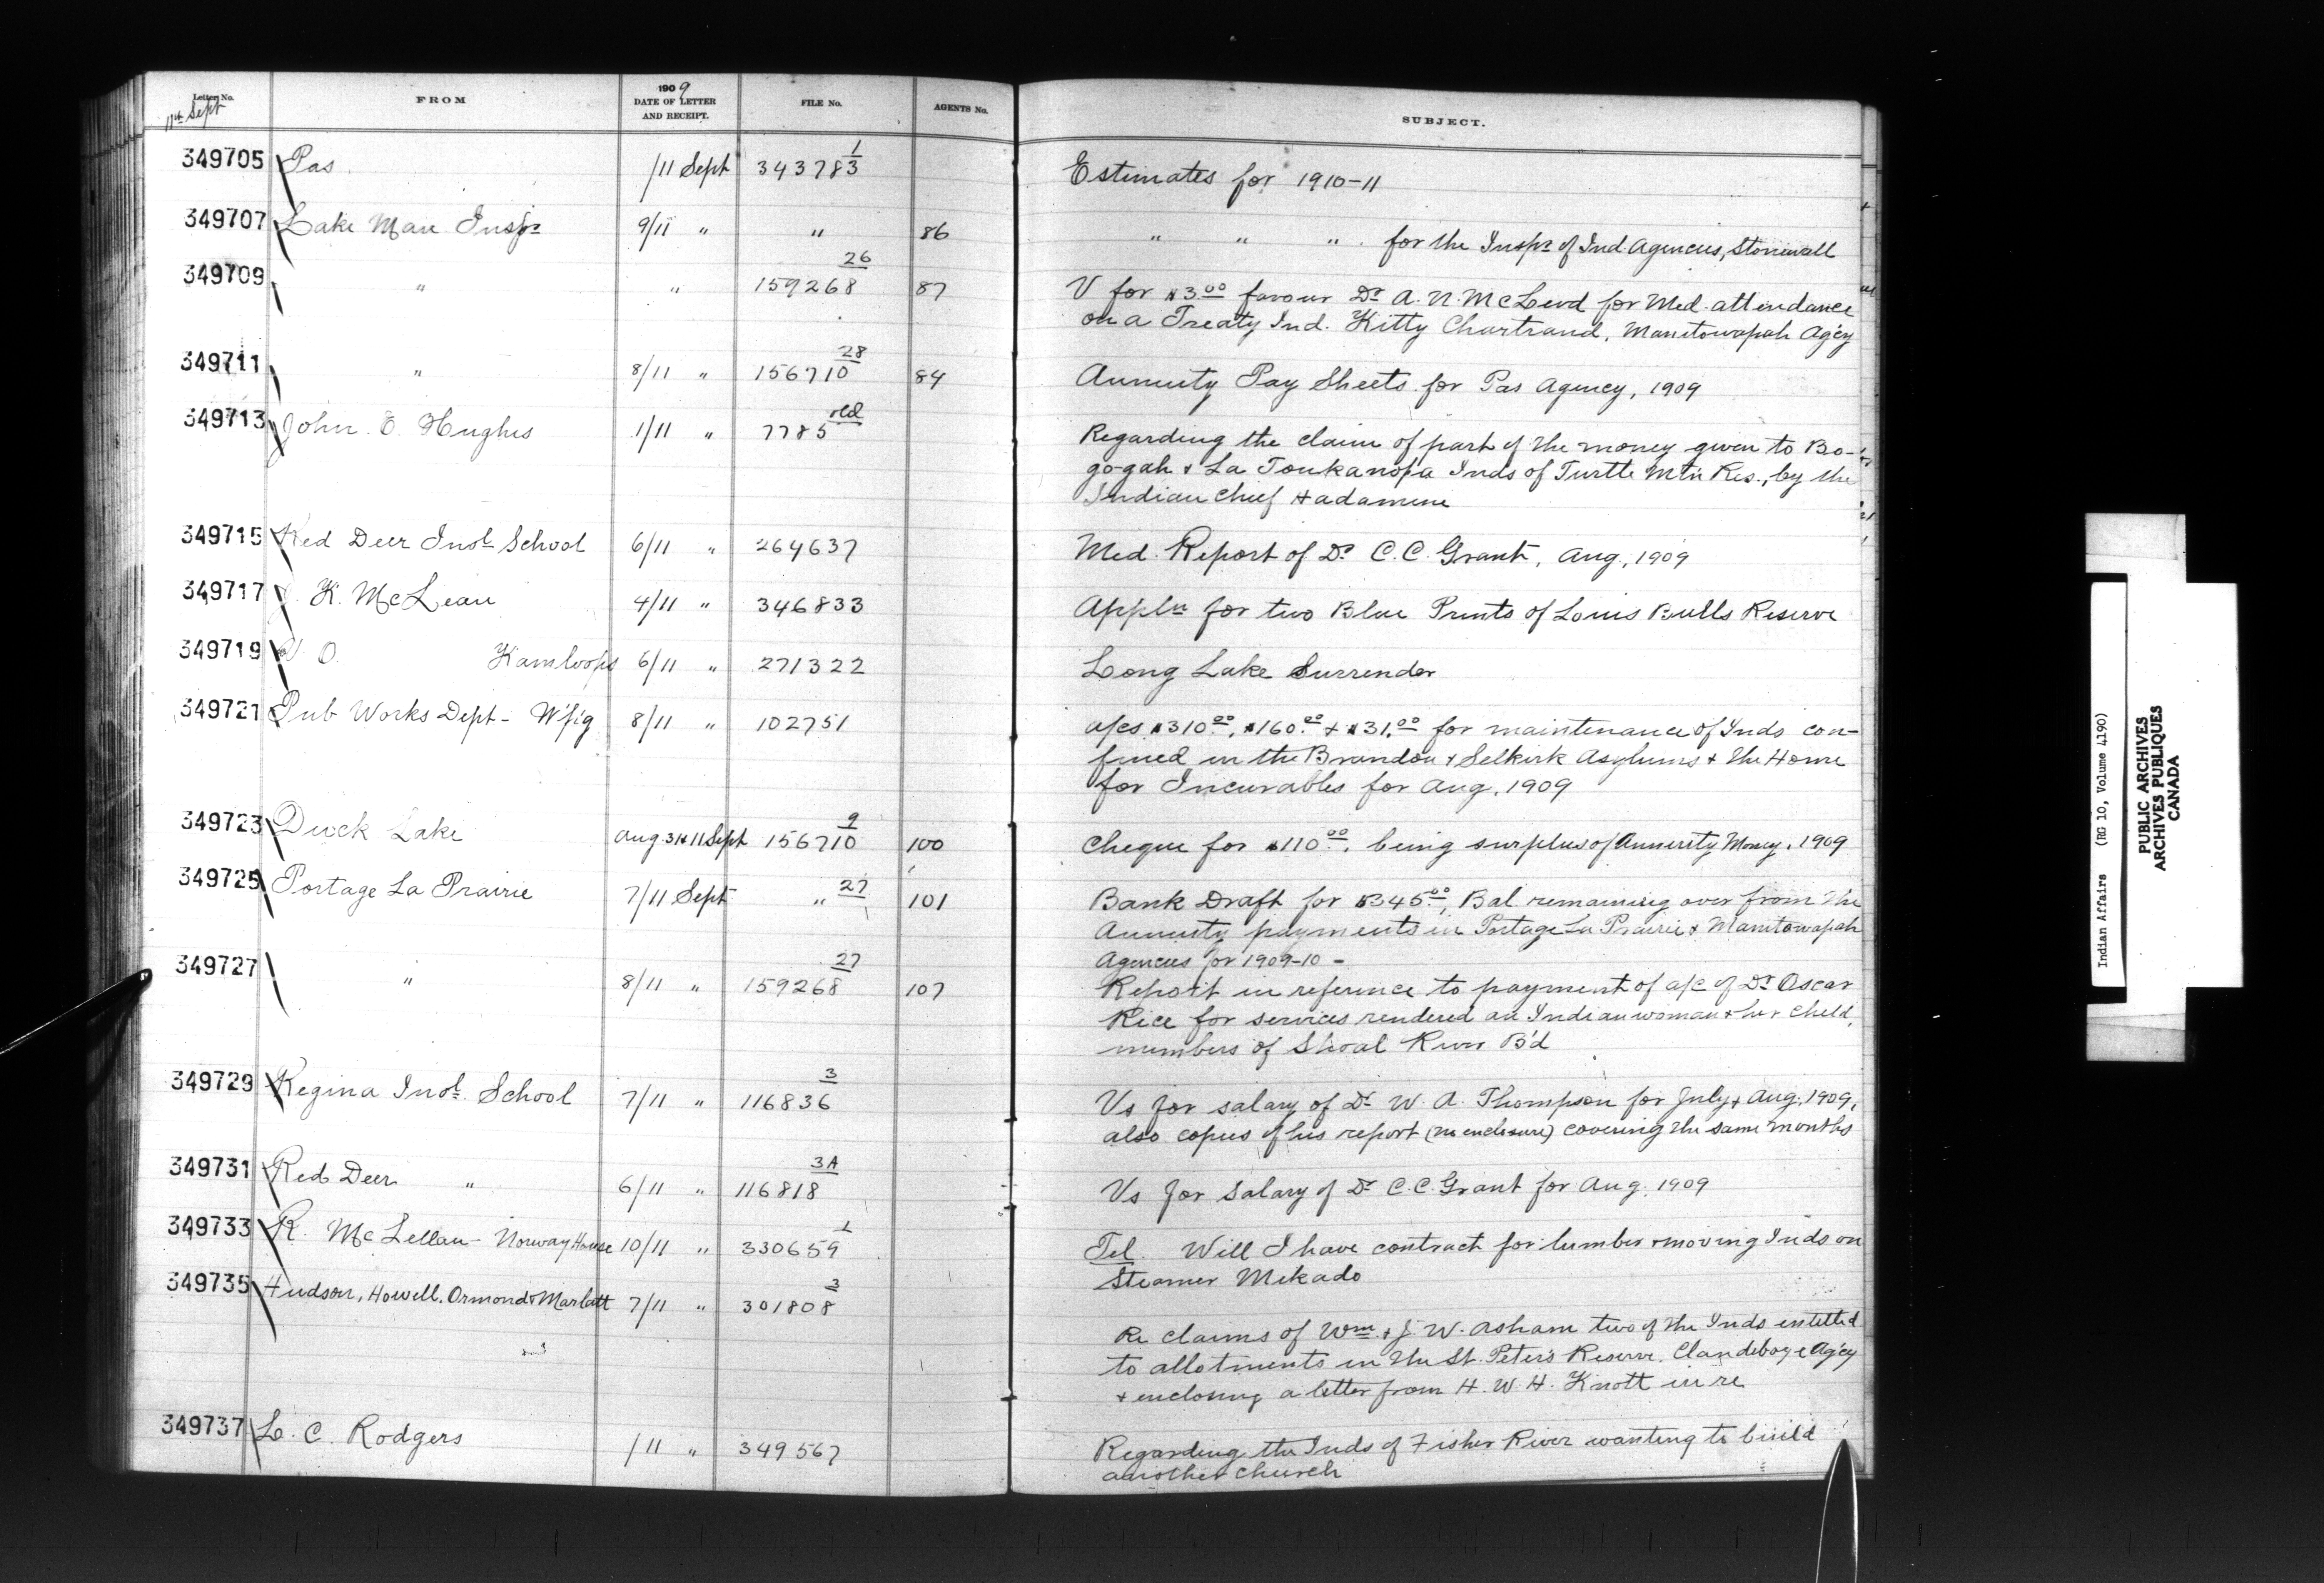 Letter No.
11th Sept
FROM
1909
DATE OF LETTER
AND RECEIPT.
FILE No.
AGENTS No.
SUBJECT.
349705 Pas /11 Sept 343783 1 Estimates for 1910-11
349707 Lake Man Inspr 9/11 " " 86 " " " for the Inspr of Ind. Agencies, Stonewall
349709 " " 159268 26 87 V for $3.00 favour Dr A. N. McLeod for Med. attendance
on a Treaty Ind. Kitty Chartrand, Manitowapah Ag'cy
349711 " 8/11 " 156710 28 84 Annuity Pay Sheets for Pas Agency, 1909
349713 John O. Hughes 1/11 " 7785 old Regarding the claim of part of the money given to Bo-
go-gah & La Toukanopa Inds of Turtle Mtn Res., by the
Indian Chief Hadamine
349715 Red Deer Indl School 6/11 " 264637 Med. Report of Dr C. C. Grant, Aug, 1909
349717 J. K. McLean 4/11 " 346833 Appln for two Blue Prints of Louis Bulls Reserve
349719 V. O. Kamloops 6/11 " 271322 Long Lake Surrender
349721 Pub Works Dept - W'p'g 8/11 " 102751 a/cs $310.00, $160.00 & $31.00 for maintenance of Inds con-
fined in the Brandon & Selkirk Asylums & the Home
for Incurables for Aug. 1909
349723 Duck Lake Aug 31st 11 Sept 156710 9 100 Cheque for $110.00, being surplus of Annuity Money, 1909
349725 Portage La Prairie 7/11 Sept " 27 101 Bank Draft for $345.00, Bal remaining over from the
Annuity payments in Portage La Prairie & Manitowapah
Agencies for 1909-10 -
349727 " 8/11 " 159268 27 107 Report in reference to payment of a/c of Dr Oscar
Rice for services rendered an Indian woman & her child,
members of Shoal River B'd
349729 Regina Indl. School 7/11 " 116836 3 Vs for salary of Dr W. A. Thompson for July & Aug. 1909,
also copies of his report (no enclosure) covering the same months
349731 Red Deer " 6/11 " 116818 3A Vs for Salary of Dr C. C. Grant for Aug. 1909
349733 R. McLellan - Norway House 10/11 " 330659 1 Tel. Will I have contract for lumber & moving Inds on
Steamer Mikado
349735 Hudson, Howell, Ormond & Marlatt 7/11 " 301808 3
Re claims of Wm. & J. W. Asham two of the Inds entitled
to allotments in the St. Peter's Reserve. Clandeboye Ag'cy
& enclosing a letter from H. W. H. Knott in re
349737 L. C. Rodgers /11 " 349567 Regarding the Inds of Fisher River wanting to build
another church
Indian Affairs (RG 10, Volume 4190)
PUBLIC ARCHIVES
ARCHIVES PUBLIQUES
CANADA